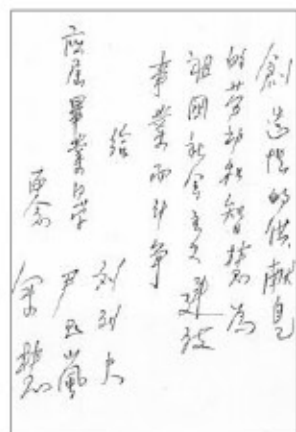 創造性的供献自己
的劳动和智慧為
祖國社会主义建设
事業而斗争
给
应届畢業同学
刘列夫
尹五嵐